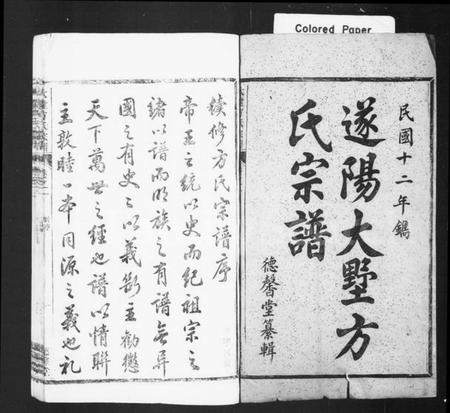 Colored Paper
民國十二年鐫
遂陽大墅方
氏宗譜
德馨堂纂輯
續修方氏宗譜序
帝王之統以史而紀祖宗之
緒以譜而明族之有譜無異
國之有史史以義斷主勸懲
天下萬世之經也譜以情聯
主敦睦一本同源之義也禮